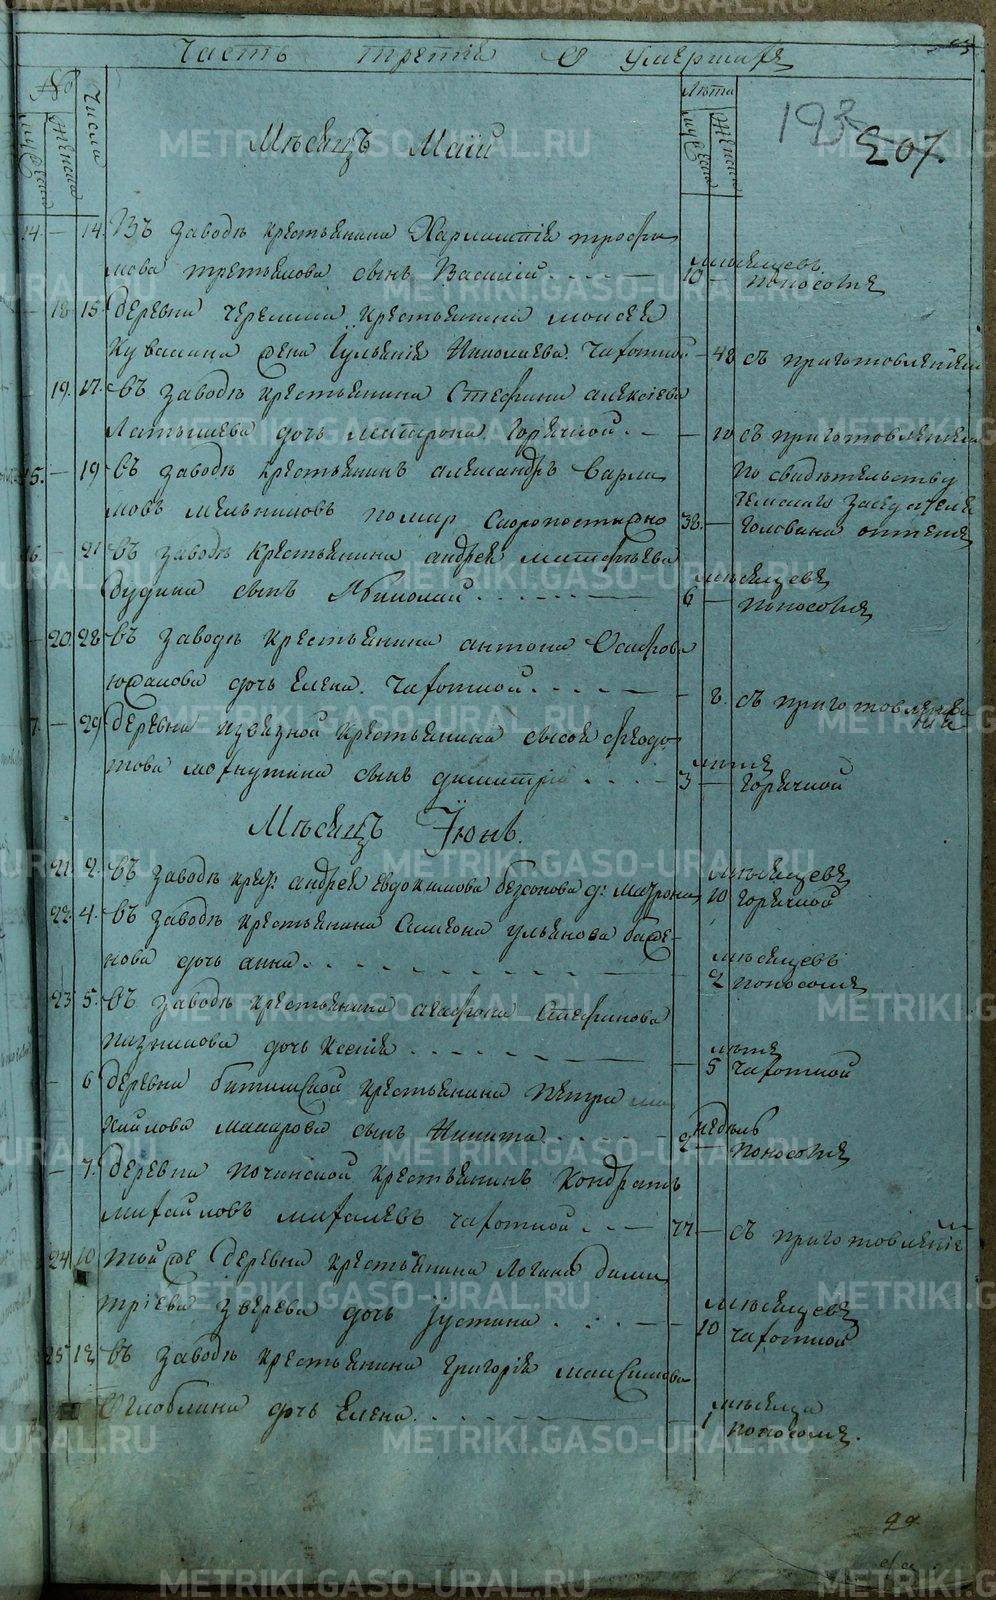 Часть третiя О умершихъ
№ Числа Лѣта
мужеска женска мужеска женска
193
207.
Мѣсяцъ Маiй
14. — 14. Въ заводѣ крестьянина Харлампiя трофи
мова третьякова сынъ Василiй — 10 мѣсяцевъ поносомъ
— 18 15 деревни черемши крестьянина моисея
Кувалина жена Iульянiя Николаева. Чахоткой — 48 съ приготовленiем
— 19. 17. въ заводѣ крестьянина Стефана алексiева
Латышева дочь матрона. Горячкой. — 10 съ приготовленiем
15. — 19 въ заводѣ крестьянинъ александръ Варла
мовъ мельниковъ помир скоропостижно 38. — По свидѣтельству земскаго заседателя Голована отпетъ
16. — 21 въ заводѣ крестьянина андрея матфѣева
дудина сынъ Николай — 6 — мѣсяцевъ поносомъ
— 20. 28 въ заводѣ крестьянина антона Осифова
южакова дочь Елена. Чахоткой. — 8. съ приготовленiем
7. — 29 деревни Извязной крестьянина сысоя федо
това могнутина сынъ димитрiй — 3 — лѣтъ Горячкой
Мѣсяцъ Iюнь.
21. 2. въ заводѣ крес: андрея Евдокимова безсонова д: матрона 10 мѣсяцевъ Горячкой
22. 4. въ заводѣ крестьянина Симеона ульянова баже-
нова дочь анна. — 2 мѣсяцевъ поносомъ
23 5. въ заводѣ крестьянина агафона Стефанова
пазникова дочь Ксенiя — 5 лѣтъ Чахоткой
— 6 деревни битимской крестьянина петра ми
хайлова макарова сынъ Никита — 2 — недѣль поносомъ
— 7. деревни починской крестьянинъ Кондратъ
михайловъ михалевъ чахоткой. — 77 — съ приготовленiем
24. 10 той же деревни крестьянина Логина дими
трiева зверева дочь Iустина — 10 мѣсяцевъ чахоткой
25 12 въ заводѣ крестьянина григорiя максимова
Оглоблина дочь Елена — 1 мѣсяца поносомъ.